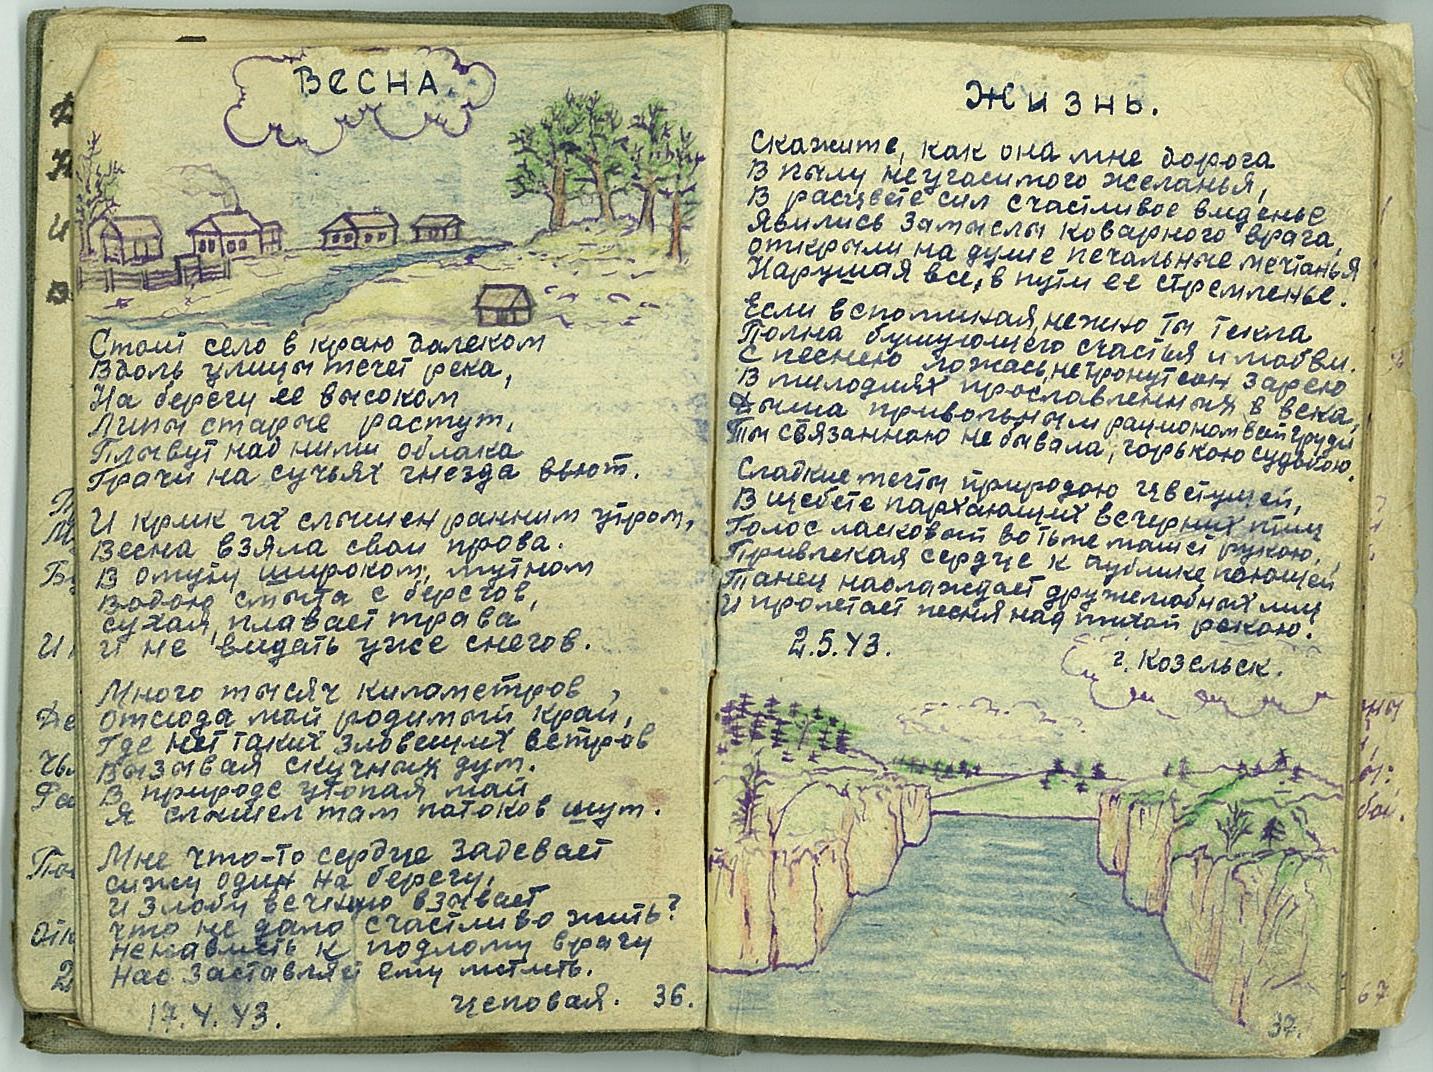 ВЕСНА
Стоит село в краю далеком
Вдоль улицы течет река,
На берегу ее высоком
Липы старые растут,
Плывут над ними облака
Грачи на сучьях гнезда вьют.
И крик их слышен ранним утром,
Весна взяла свои прова.
В омуту широком, мутном
Водою смыта с берегов,
сухая, плавает трава
И не видать уже снегов.
Много тысяч километров,
отсюда мой родимый край,
Где нет таких зловещих ветров
Вызывая скучных дум.
В природе утопая май
Я слышел там потоков шум.
Мне что-то сердце задевает
сижу один на берегу,
И злобу вечную взывает
что не дало счастливо жить?
ненависть к подлому врагу
нас заставляет ему мстить.
17.4.43.
Цеповая. 36.
ЖИЗНЬ.
Скажите, как она мне дорога
В пылу неугасимого желанья,
В расцвете сил счастливое виденье
Явились замыслы коварного врага,
открыли на душе печальные мечтанья
Нарушая все, в пути ее стремленье.
Если вспоминая, нежно ты текла
Полна бушующего счастья и любви.
С песнею ложась, не тронут сон зарею
В милодиях прославленныя в века,
Дыша привольным рационом всей груди
Ты связанною не бывала, горькою судьбою.
Сладкие мечты природою цветущей,
В щебете пархающих вечерних птиц
Голос ласковый во тьме рукою,
Привлекая сердце к публике поющей
Танец наслаждает дружелюбных лиц
И пролетает песня над тихой рекою.
2.5.43.
г. Козельск.
37.